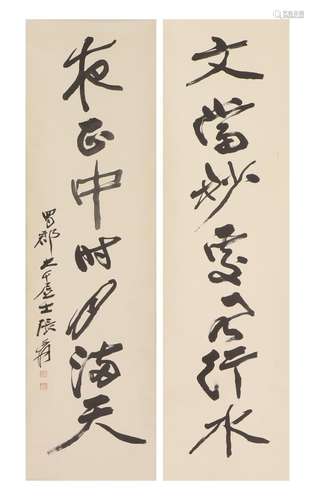 文當妙處風行水
夜正中時月滿天
蜀郡大千居士張爰